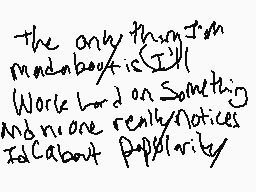 the only thing I'm
mad about is I'll
work hard on something
and no one really notices
Idc about popularity